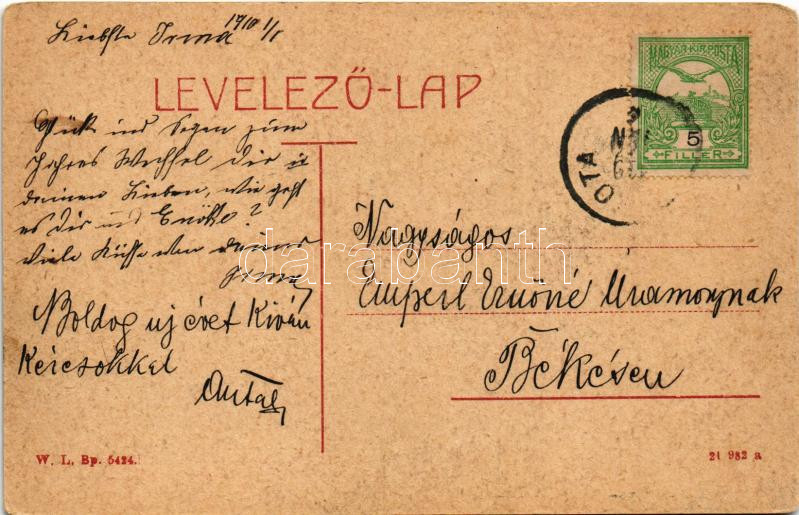 Liebste Irma 1910 1/1
LEVELEZŐ-LAP
Glück und Segen zum
Jahres Wechsel dir u
deinen Lieben, wie geht
es dir und Enöke?
viele Küsse von deiner
Irma
Boldog uj évet Kiván
Antal
MAGYAR·KIR·POSTA
5
FILLER
OTA
Nagyságos
Emperl Ernőné Uramonynak
Békésen
darabanth
W. L. Bp. 5424.
21 982 a